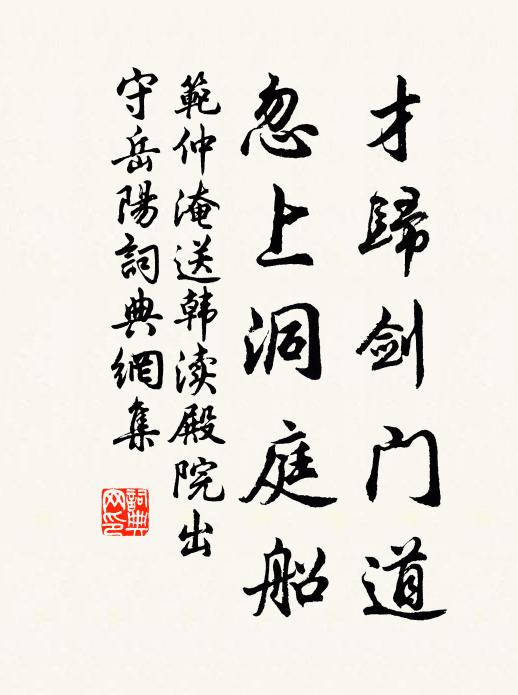 才歸剑门道
忽上洞庭船
範仲淹送韩渎殿院出
守岳陽詞典網集
詞典网印